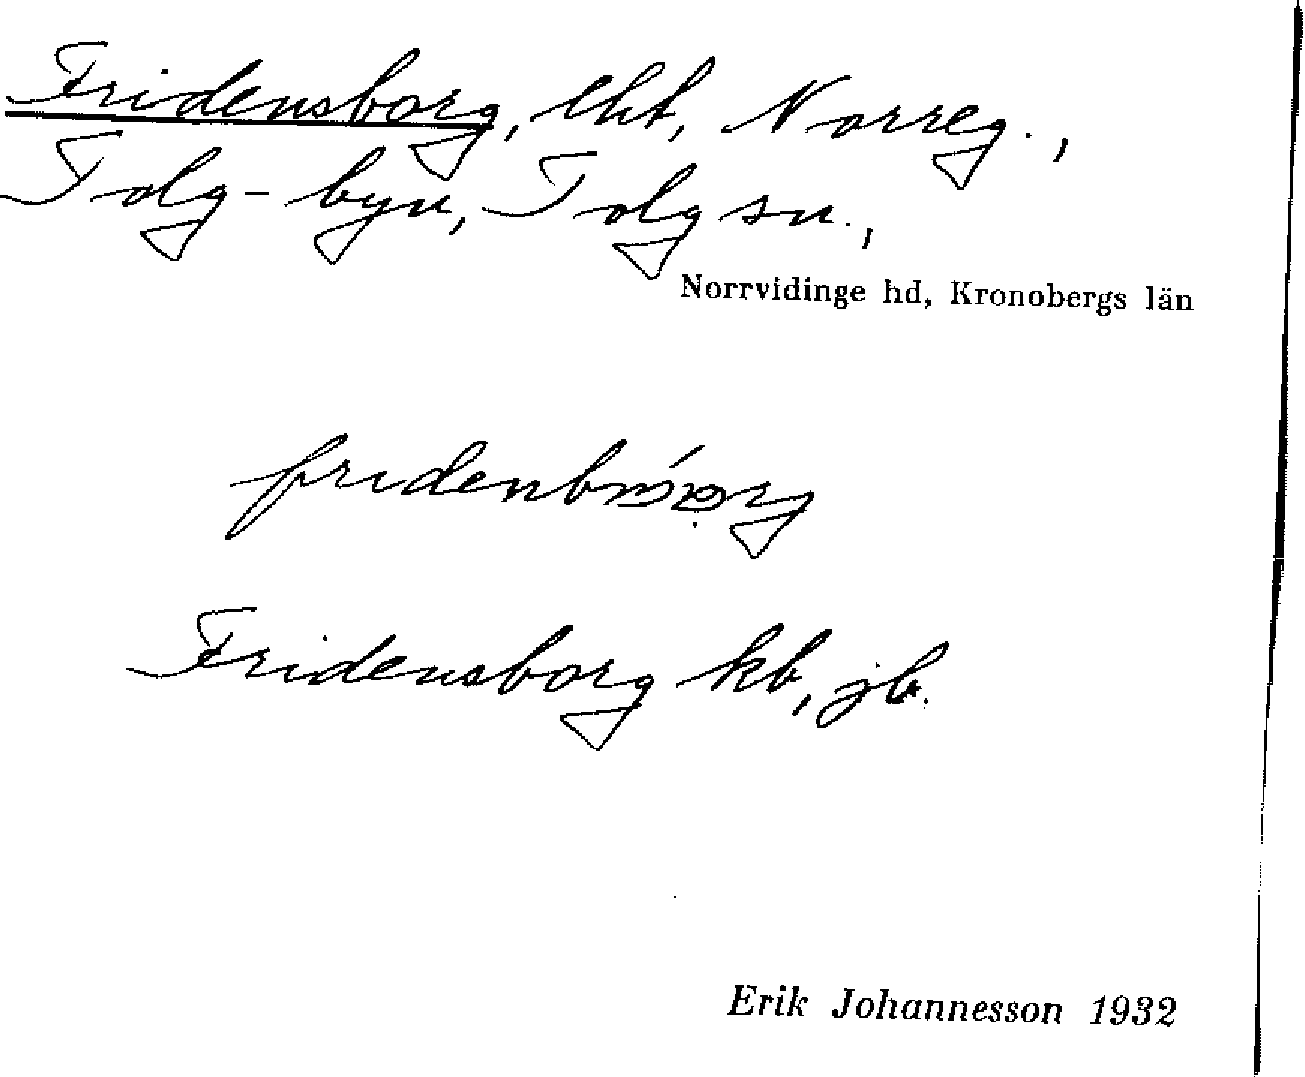 Fridensborg, lht, Norreg.,
Tolg-byn, Tolg sn.,
Norrvidinge hd, Kronobergs län
Fridensborg kb, jb.
Erik Johannesson 1932